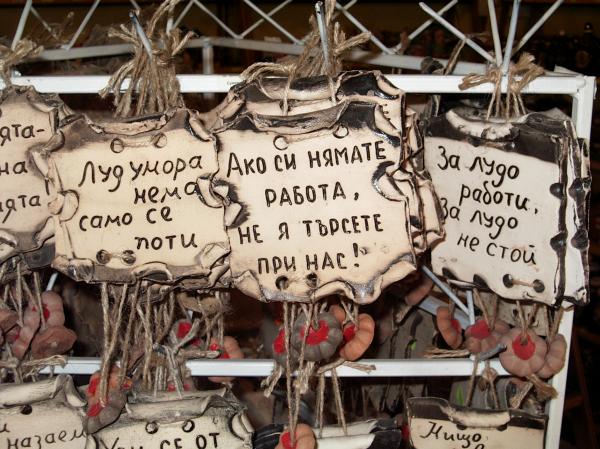 ята-
на
ята!
Луд умора
нема
само се
поти
Ако си нямате
работа,
не я търсете
при нас!
За лудо
работи,
за лудо
не стой
назаем
се от
Нищо